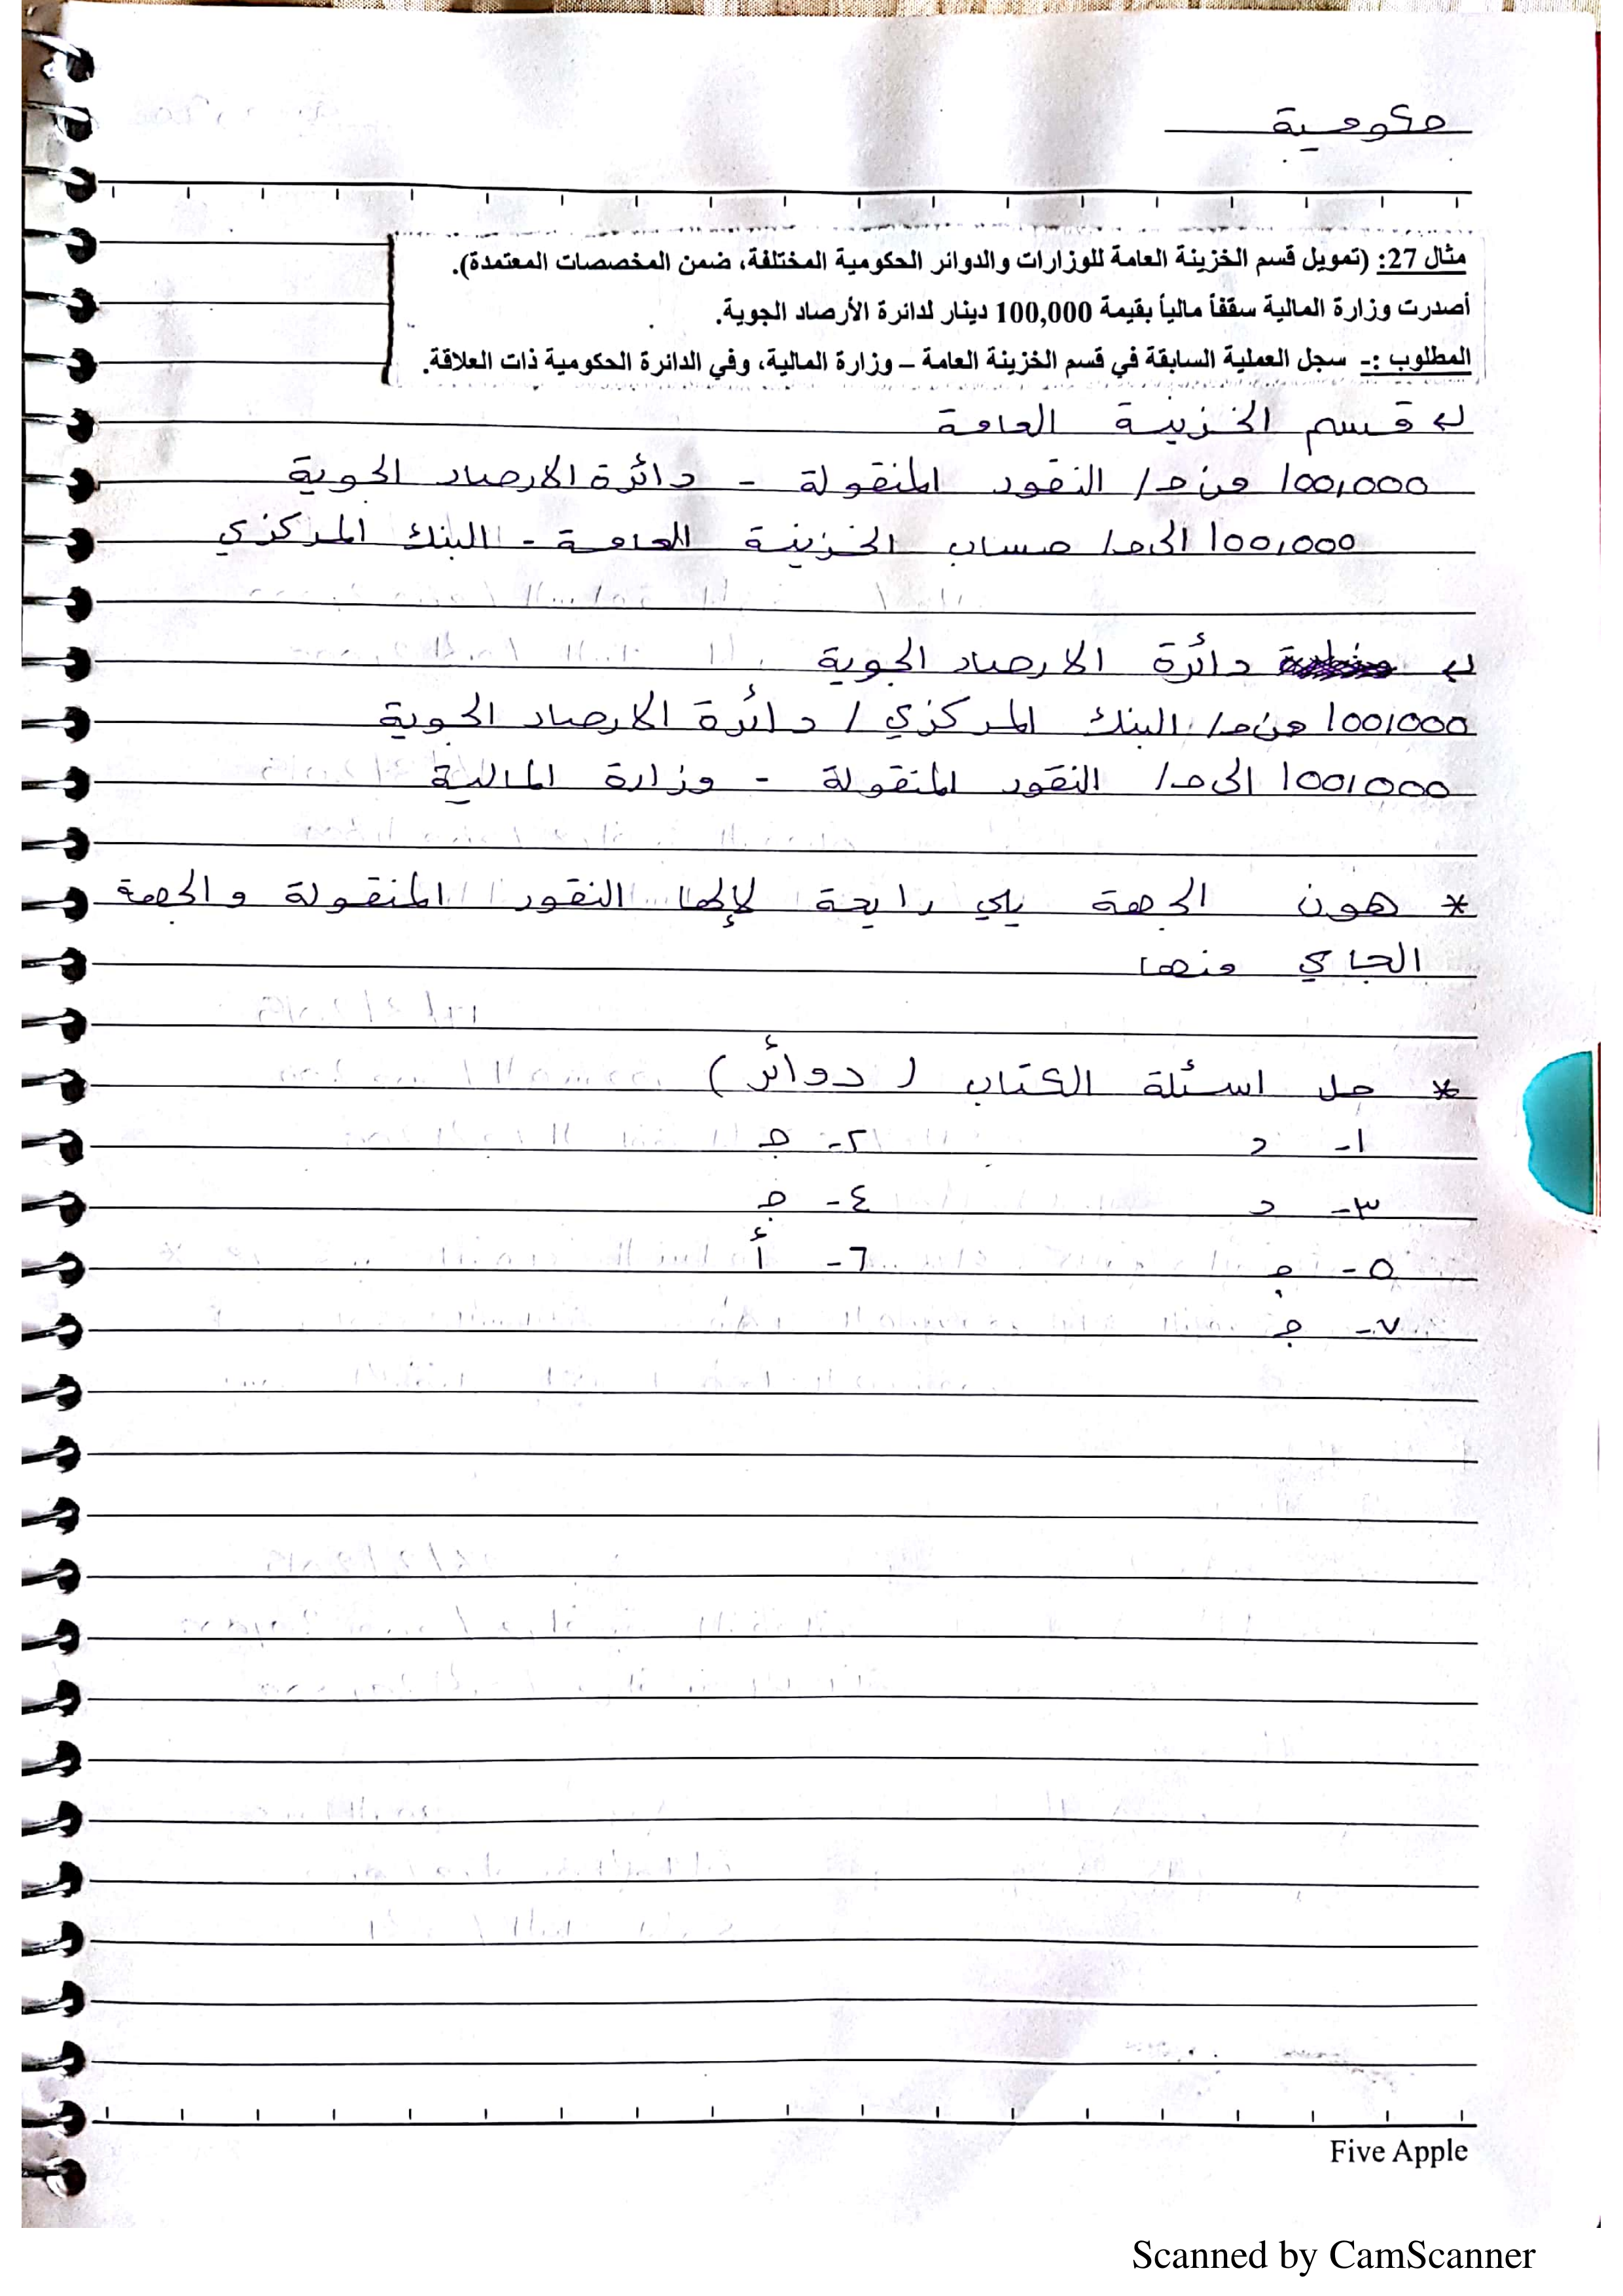 حكومية
مثال 27: (تمويل قسم الخزينة العامة للوزارات والدوائر الحكومية المختلفة، ضمن المخصصات المعتمدة).
أصدرت وزارة المالية سقفاً مالياً بقيمة 100,000 دينار لدائرة الأرصاد الجوية.
المطلوب :- سجل العملية السابقة في قسم الخزينة العامة – وزارة المالية، وفي الدائرة الحكومية ذات العلاقة.
قسم الخزينة العامة
100,000 من ح/ النقود المنقولة - دائرة الارصاد الجوية
100,000 الى ح/ حساب الخزينة العامة - البنك المركزي
دائرة الارصاد الجوية
100,000 من ح/ البنك المركزي / دائرة الارصاد الجوية
100,000 الى ح/ النقود المنقولة - وزارة المالية
* هون الجهة يلي رايحة لإلها النقود المنقولة والجهة
الجاي منها
* حل اسئلة الكتاب (دوائر)
١- د ٢- ج
٣- د ٤- ج
٥- ج ٦- أ
٧- ج
Five Apple
Scanned by CamScanner